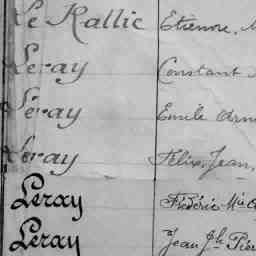 Le Rallic Etienne,
Leray Constant
Leray Emile
Leray Félix, Jean,
Leray Frédéric
Leray Jean